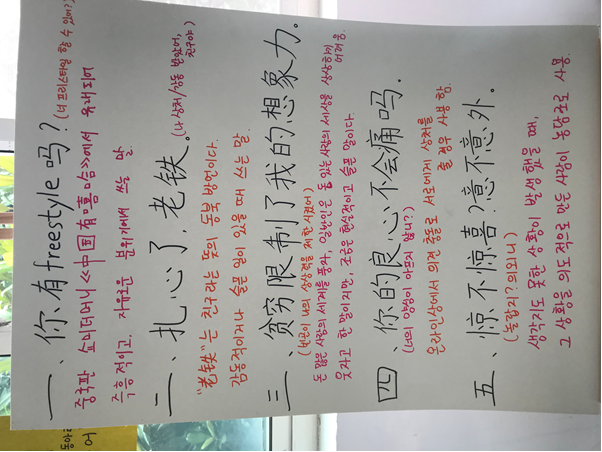 一、你有freestyle吗? (너 프리스타일 할 수 있어?)
중국판 쇼미더머니 《中国有嘻哈》에서 유래되어
즉흥적이고, 자유로운 분위기에서 쓰는 말.
二、扎心了,老铁。(나 상처/감동 받았어, 친구야)
"老铁"는 친구라는 뜻의 동북 방언이다.
감동적이거나 슬픈 일이 있을 때 쓰는 말.
三、贫穷限制了我的想象力。
(빈곤이 나의 상상력을 제한시켰어)
돈 많은 사람의 세계를 풍자, 일반인은 돈 있는 사람의 세상을 상상하기
어려움.
웃자고 한 말이지만, 조금은 현실적이고 슬픈 말이다.
四、你的良心不会痛吗。
(너의 양심이 아프지 않니?)
온라인상에서 의견 충돌로 서로에게 상처를
줄 경우 사용함.
五、惊不惊喜?意不意外。
(놀랍지? 의외니)
생각지도 못한 상황이 발생했을 때,
그 상황을 의도적으로 만든 사람이 농담조로 사용.
동아리
어